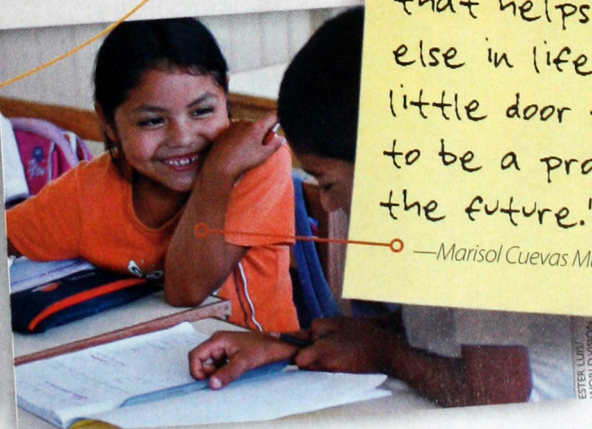 that helps
else in life
little door
to be a
the future."
—Marisol Cuevas
ESTER LUIS/
WORLD VISION